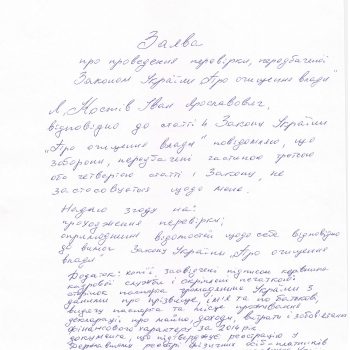 Заява
про проведення перевірки, передбаченої
Законом України „Про очищення влади"
Я, Костів Іван Ярославович,
відповідно до статті 4 Закону України
„Про очищення влади" повідомляю, що
заборони, передбачені частиною третьою
або четвертою статті 1 Закону, не
застосовуються щодо мене.
Надаю згоду на:
проходження перевірки;
оприлюднення відомостей щодо себе відповідно
до вимог Закону України „Про очищення
влади"
Додаток: копії, засвідчені підписом керівника
кадрової служби і скріплені печаткою:
сторінок паспорта громадянина України з
даними про прізвище, ім'я та по батькові,
видачу паспорта та місце проживання
декларації про майно, доходи, витрати і зобов'язання
фінансового характеру за 2014 рік
документа, що підтверджує реєстрацію у
Державному реєстрі фізичних осіб-платників